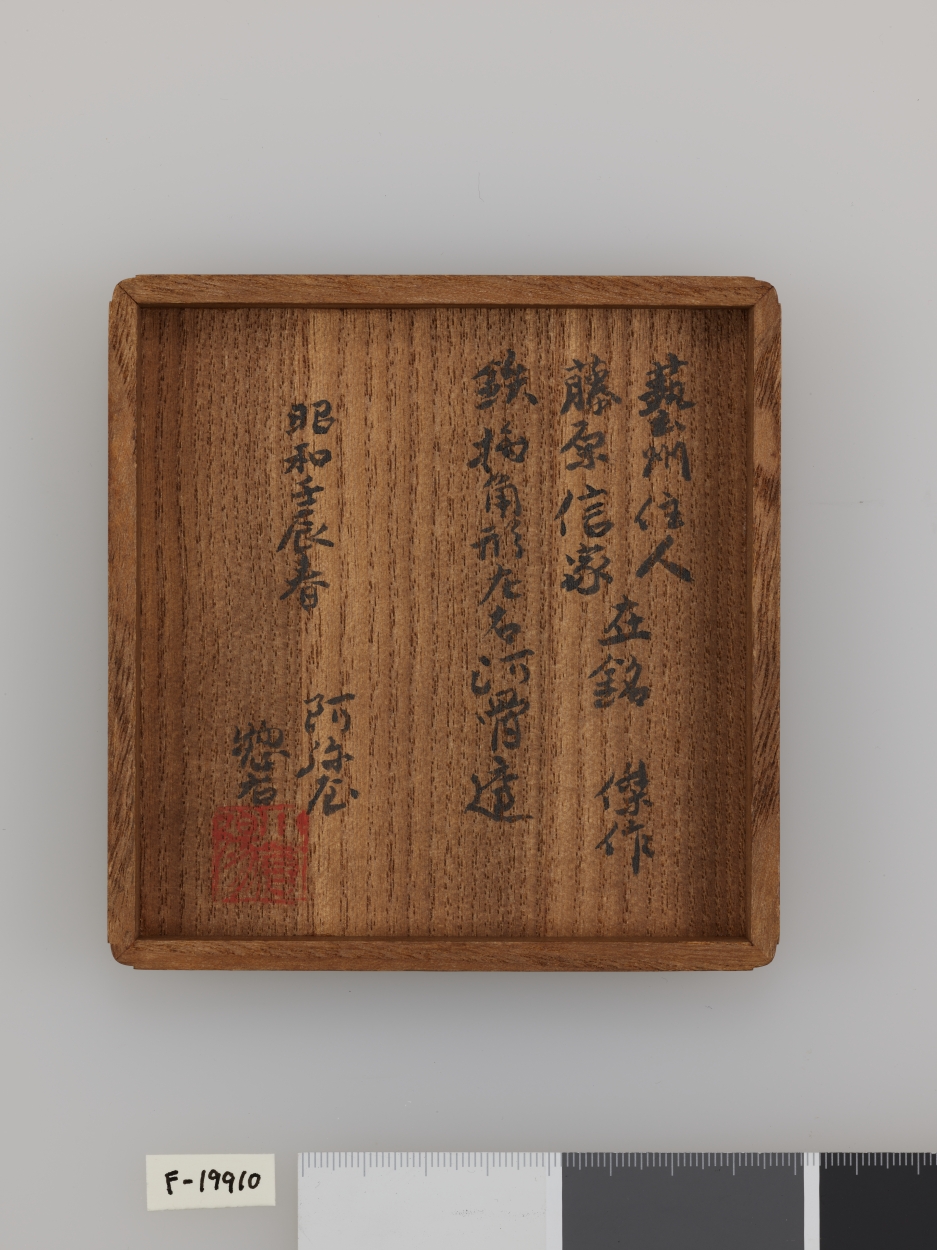 藝州住人
藤原信家
在銘 傑作
鉄撫角形左右河骨透
昭和壬辰春
阿弥屋
惣右
F-19910